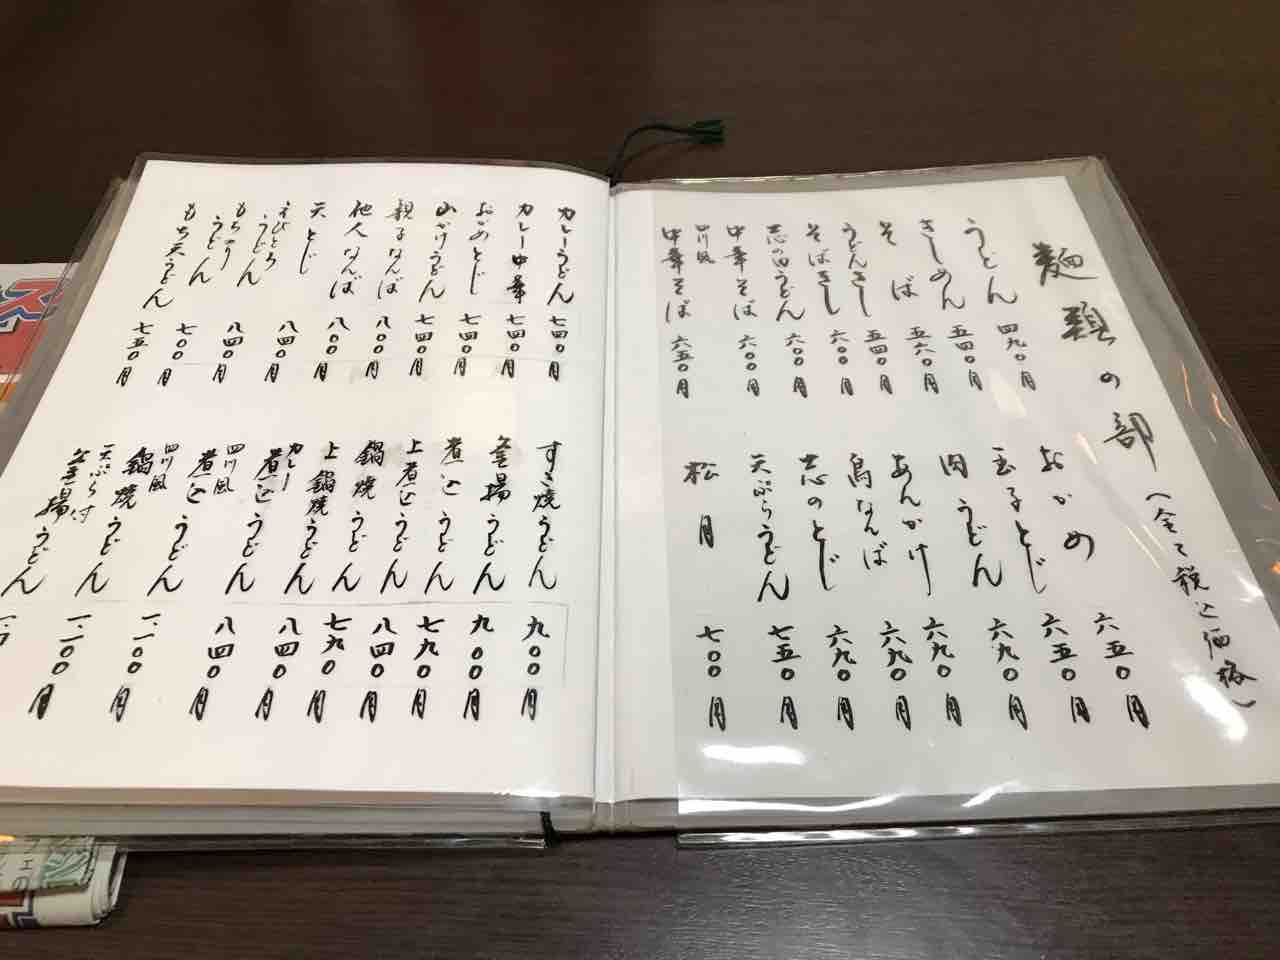 麺類の部（全て税込価格）
うどん 四九〇円
きしめん 五四〇円
そば 五六〇円
うどんきし 五四〇円
そばきし 六〇〇円
志の田うどん 六〇〇円
中華そば 六〇〇円
四川風中華そば 六五〇円
おかめ 六五〇円
玉子とじ 六五〇円
肉うどん 六九〇円
あんかけ 六九〇円
鳥なんば 六九〇円
志のとじ 六九〇円
天ぷらうどん 七五〇円
松月 七〇〇円
カレーうどん 七四〇円
カレー中華 七四〇円
おかめとじ 七四〇円
山かけうどん 七四〇円
親子なんば 八〇〇円
他人なんば 八〇〇円
天とじ 八四〇円
えびとろうどん 八四〇円
もち入りうどん 七〇〇円
もち天うどん 七五〇円
すき焼うどん 九〇〇円
釜揚うどん 九〇〇円
煮込うどん 七九〇円
上煮込うどん 八四〇円
鍋焼うどん 七九〇円
上鍋焼うどん 八四〇円
カレー煮込うどん 八四〇円
四川風煮込うどん 一.一〇〇円
四川風鍋焼うどん 一.一〇〇円
天ぷら付釜揚うどん